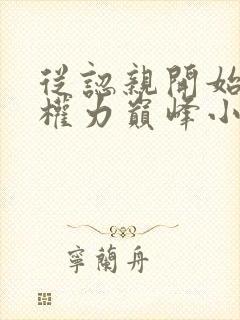 從認親開始
權力巔峰小
寧蘭舟